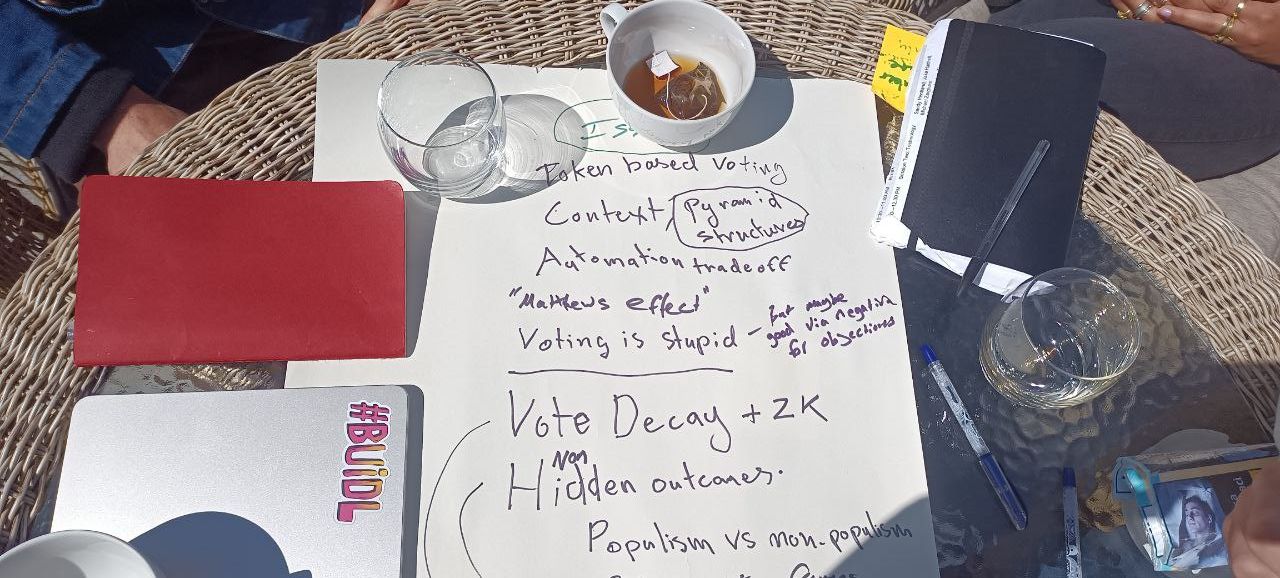 Token based Voting
Context, Pyramid
structures
Automation tradeoff
"Matthews effect"
Voting is stupid - but maybe
good via negativa
for objections
Vote Decay + ZK
Non
Hidden outcomes.
Populism vs non-populism
#BUiDL